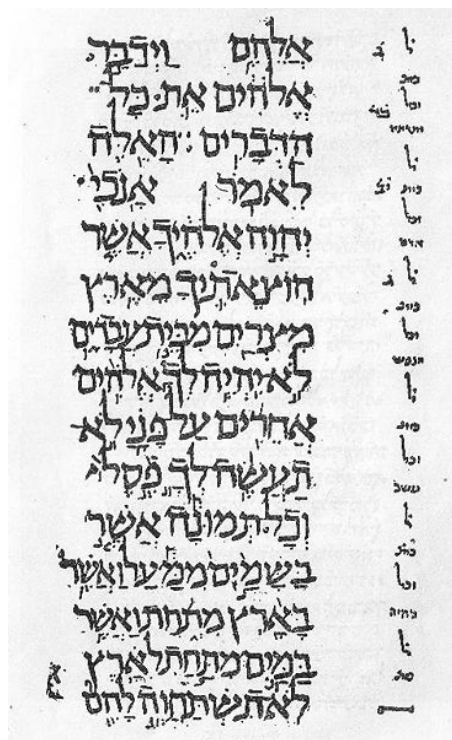 אֲלֵהֶם וַיְדַבֵּר
אֱלֹהִים אֵת כָּל
הַדְּבָרִים הָאֵלֶּה
לֵאמֹר אָנֹכִי
יְהוָה אֱלֹהֶיךָ אֲשֶׁר
הוֹצֵאתִיךָ מֵאֶרֶץ
מִצְרַיִם מִבֵּית עֲבָדִים
לֹא יִהְיֶה לְךָ אֱלֹהִים
אֲחֵרִים עַל פָּנַי לֹא
תַעֲשֶׂה לְךָ פֶסֶל
וְכָל תְּמוּנָה אֲשֶׁר
בַּשָּׁמַיִם מִמַּעַל וַאֲשֶׁר
בָּאָרֶץ מִתַּחַת וַאֲשֶׁר
בַּמַּיִם מִתַּחַת לָאָרֶץ
לֹא תִשְׁתַּחֲוֶה לָהֶם